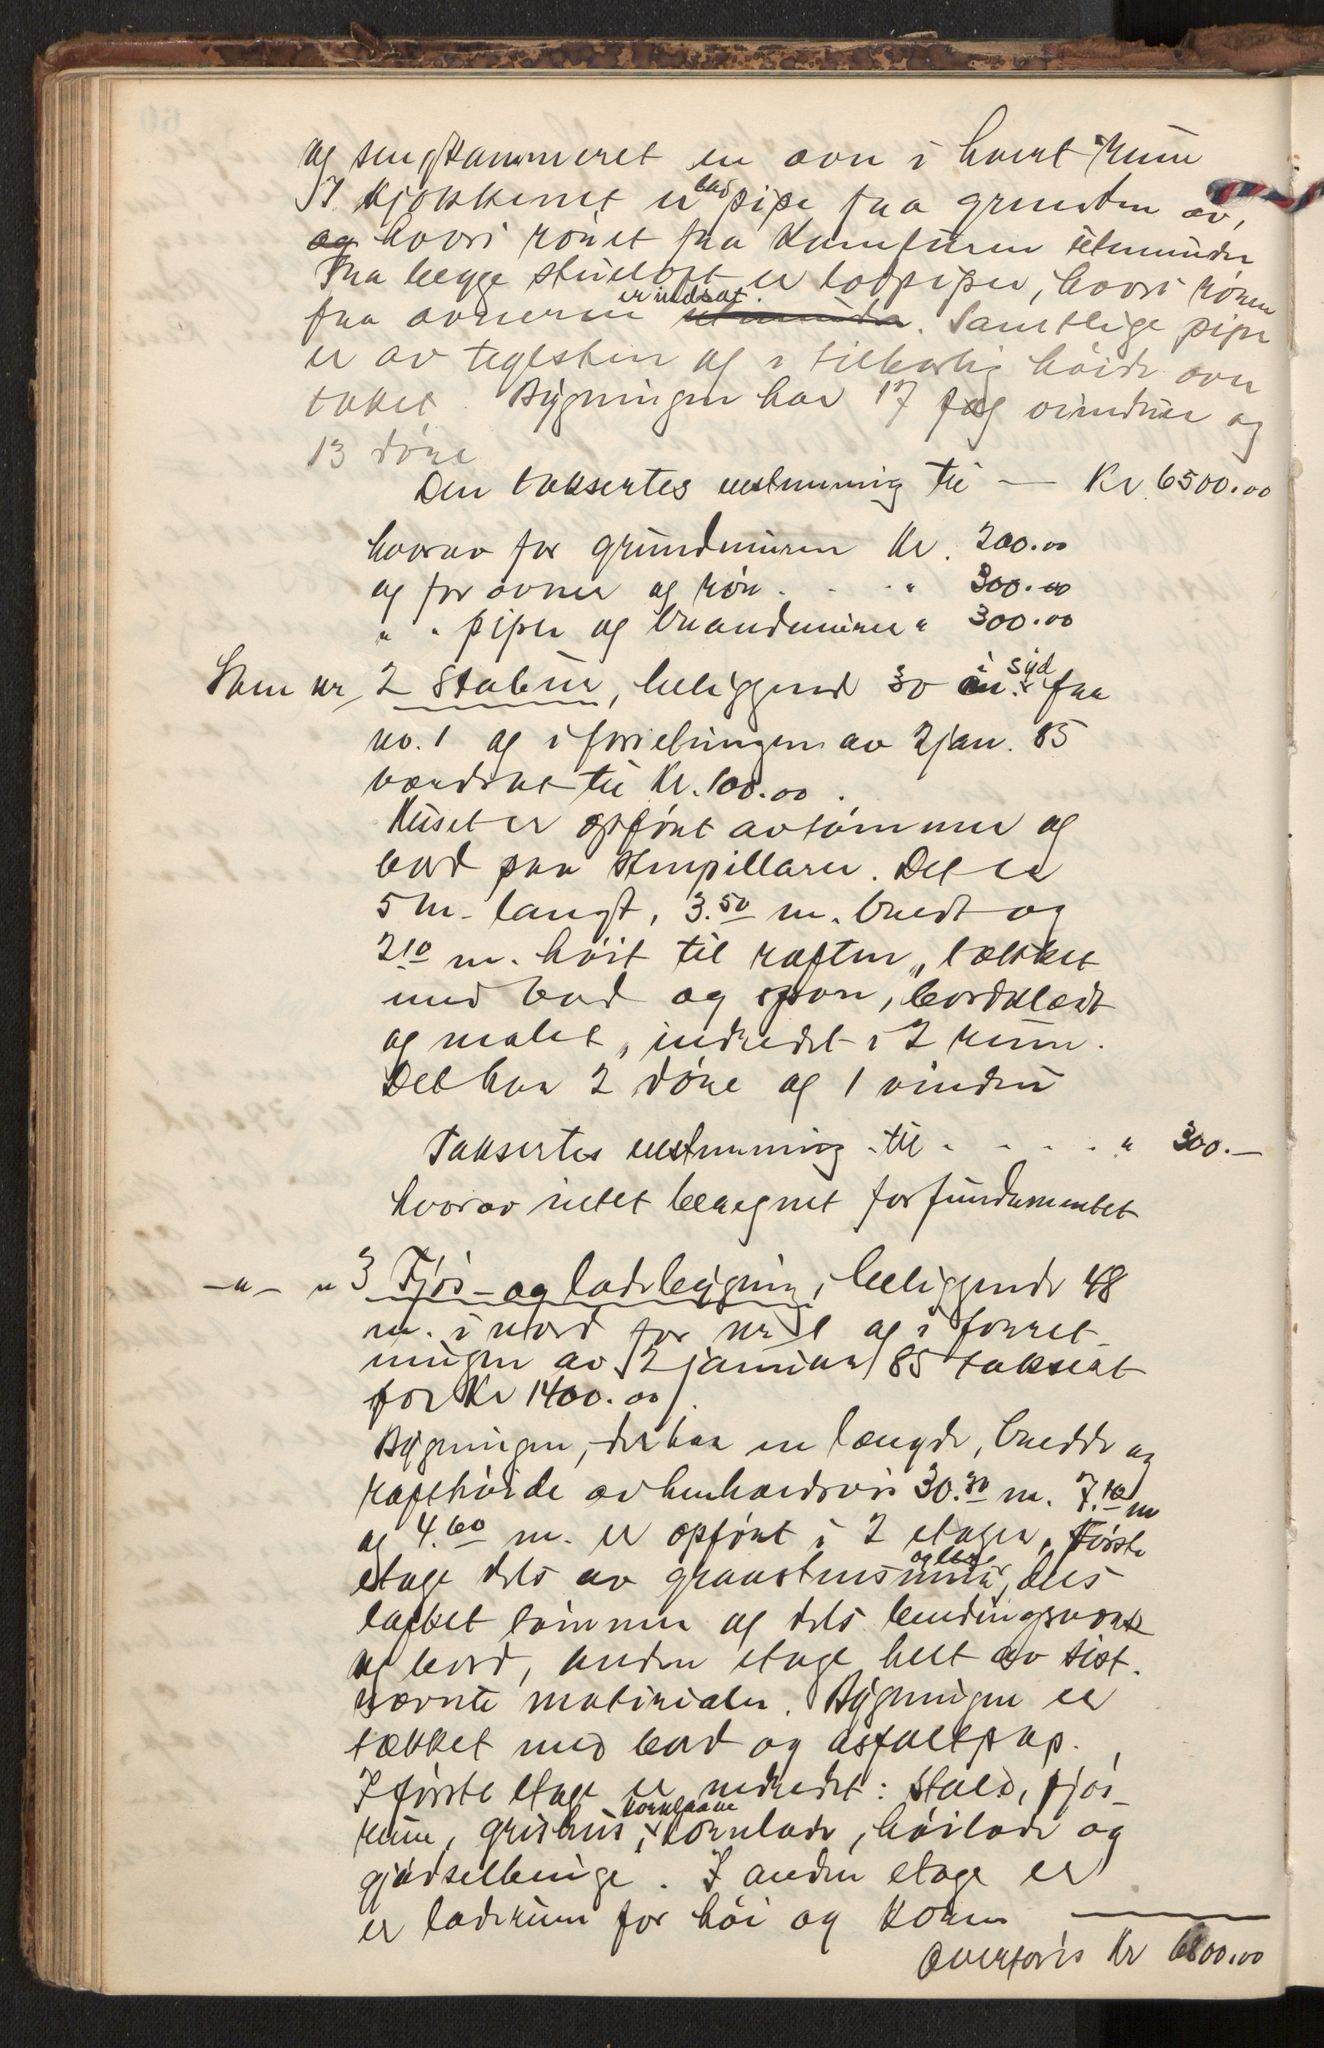 og sengkammeret en ovn i hvert rum
I kjøkkenet er lodpipe fra grunden av,
og hvori røret fra komfuren utmunder
Fra begge stueloft er lodpiper, hvori rørene
fra ovnerne er indsat utmunder. Samtlige piper
er av teglsten og i tilbørlig høide over
taket. Bygningen har 17 fag vinduer og
13 døre
Den taksertes uestemmig til — Kr. 6500.00
hvorav for grundmuren Kr. 200.00
og for ovner og rør . . . " 300.00
" " piper og brandmurer " 300.00
Som nr 2 Stabur, beliggend 30 m. i syd fra
no. 1 og i forretningen av 2 jan. 85
værdsat til Kr. 100.00.
Huset er opført av tømmer og
bord paa stenpillarer. Det er
5 m. langt, 3.50 m. bredt og
2.10 m. høit til raften, tækket
med bord og spon, bordklædt
og malet, indredet i 2 rum.
Det har 2 døre og 1 vindu
Taksertes enstemmig til . . . . " 300.—
hvorav intet beregnet for fundamentet
—"— " 3 Fjøs- og ladebygning, beliggende 48
m. i nord for nr 1 og i forret-
ningen av 2 januar 85 taksert
for Kr 1400.00.
Bygningen, der har en længde, bredde og
rafthøide av henholdsvis 30.30 m. 7.10 m
og 4.60 m. er opført i 2 etager, første
etage dels av graastensmur, dels
laftet tømmer og dels bindingsverk
og bord, anden etage helt av sist-
nævnte materialer. Bygningen er
tækket med bord og asfaltpap.
I første etage er indredet: Stald, fjøs-
rum, grishus, kornlaave kornlade, høilade og
gjødselbinge. I anden etage er
er laderum for høi og korn
Overføres Kr 6800.00